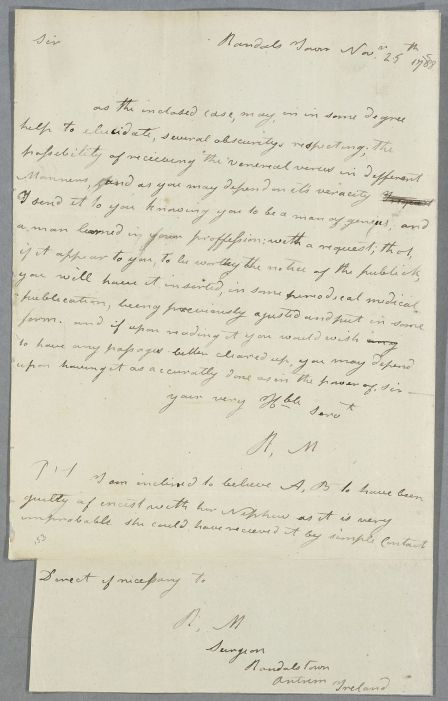 Sir Randals Town Novr. 25th 1788
as the inclosed case, may, in in some degree
help to elucidate, several obscuritys respecting, the
possibility of receiveing the venereal verus in different
Manners, and as you may depend on its veracity
I send it to you knowing you to be a man of genius, and
a man learned in your proffession: with a request; that,
if it appear to you, to be worthy the notice of the publick,
you will have it insirted, in some periodical medical
publication, being preciously ajusted and put in some
form. and if upon reading it you would wish any
to have any passages better cleared up, you may depend
upon having it as accuratly done as in the power of, sir —
your very Hble Servt
R, M
I am inclined to believe A, B to have been
guilty of incest with her Nephew as it is very
improbable she could have recieved it by simple Contact
153
Direct if necessary to
R, M
Surgeon
Randalstown
Antrim Ireland